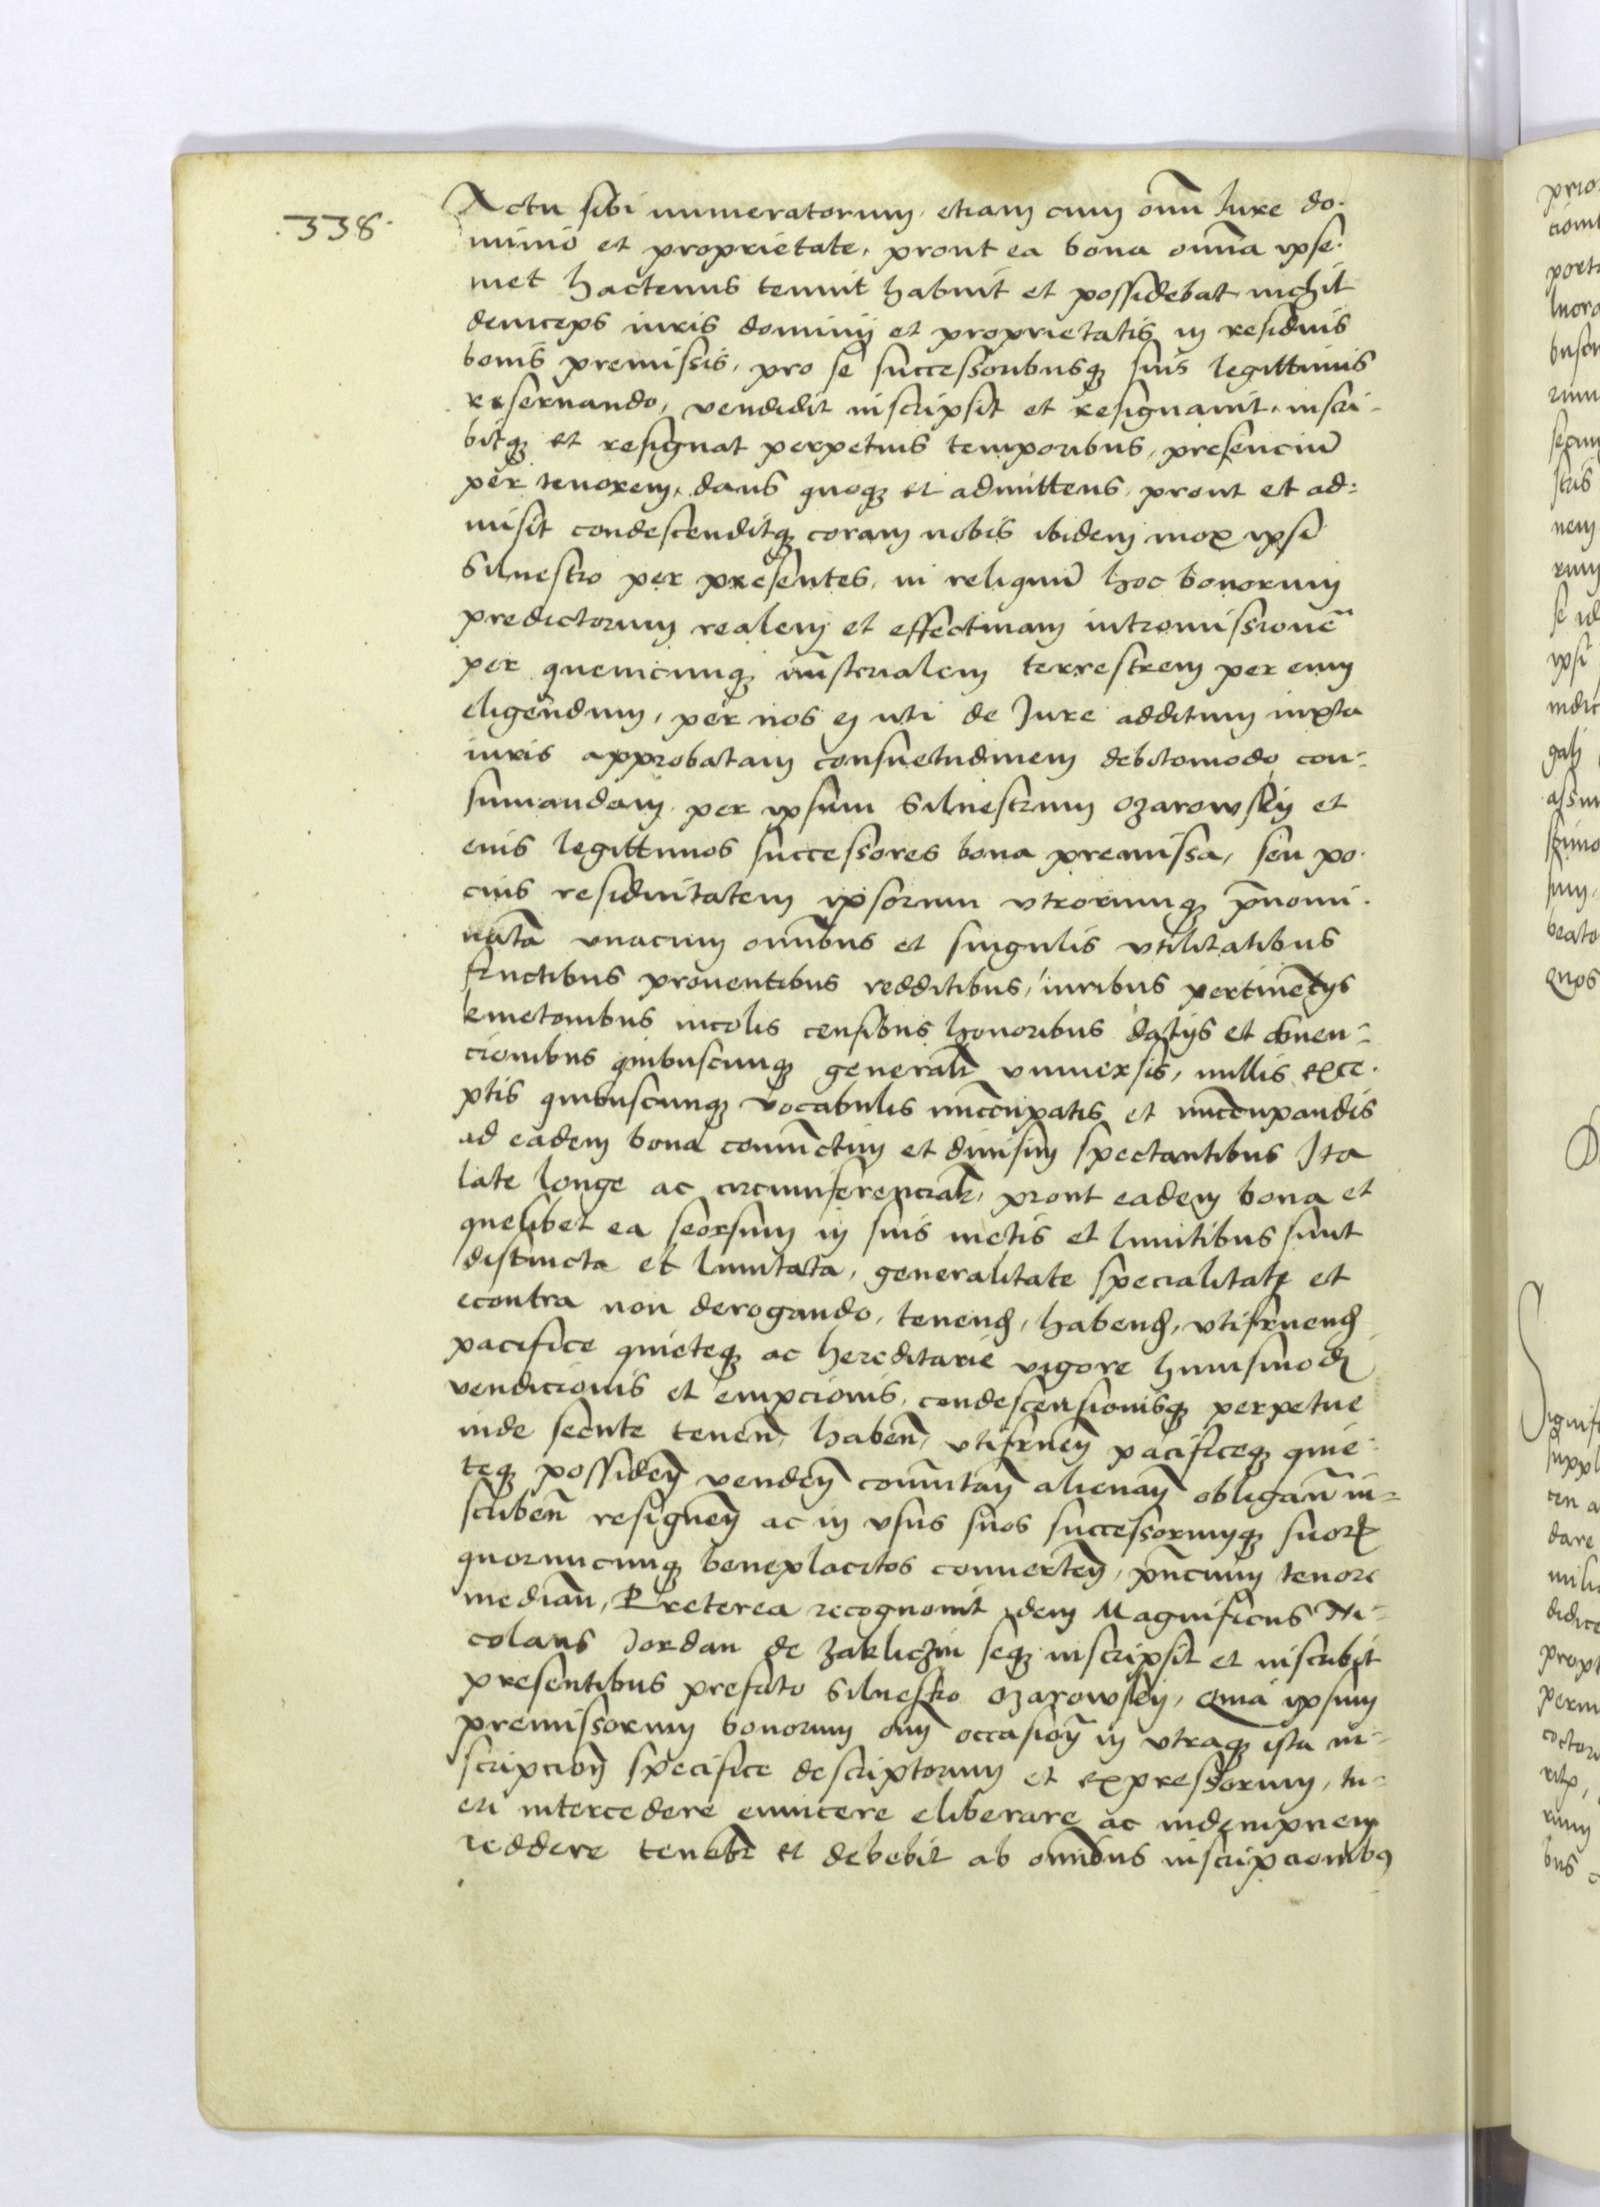 .338.
Actu sibi numeratorum, etiam cum om̄i Jure do-
minio et proprietate, prout ea bona om̄ia ipse-
met hactenus tenuit habuit et possidebat nichil
deinceps iuris dominij et proprietatis in residuis
bonis premissis, pro se successoribusq suis legittimis
reservando, vendidit inscripsit et resignavit, inscri-
bitq et resignat perpetuis temporibus, presenciū
per tenorem, dans quoq et admittens, prout et ad-
misit condescenditq coram nobis ibidem mox ipsi
Silvestro per presentes, in reliquū hoc bonorum
predictorum realem et effectivam intromissionē
per quemcunq mīsterialem terrestrem per eum
eligendum, per nos ei uti de Jure additum iuxta
iuris approbatam consuetudinem debitomodo con-
sumandam per ipsum Silvestrum Ozarowskij et
eius legittimos successores bona premissa, seu po-
cius residuitatem ipsorum utrorumq p̄nomi-
nata unacum om̄ibus et singulis utilitatibus
fructibus proventibus redditibus, iuribus pertinētijs
kmetonibus incolis censibus honoribus datijs et obven-
cionibus quibuscunq generalr universis, nullis exce-
ptis quibuscunq vocabulis nūcupatis et nūcupandis
ad eadem bona coniūctim et divisim spectantibus Ita
late longe ac circumferencialr, prout eadem bona et
quelibet ea seorsum in suis metis et limitibus sunt
distincta et limitata, generalitate specialitati et
econtra non derogando, tenend, habend, utifruend
pacifice quieteq ac hereditarie vigore huiusmodi
vendicionis et empcionis, condescensionisq perpetue
inde secute tenen̄, haben̄, utifruen̄ pacificeq quie-
teq possiden̄ venden̄ com̄utan̄ alienan̄ obligan̄ in-
scriben̄ resignen̄ ac in usus suos successorumq suor
quorumcunq beneplacitos converten̄, p̄ncium tenore
median̄, Preterea recognovit idem Magnificus Ni-
colaus Jordan de Zakliczin seq inscripsit et inscribit
presentibus prefato Silvestro Ozarowskij, Quia ipsum
premissorum bonorum om̄ occasion̄ in utraq ista in-
scripcion̄ specifice descriptorum et expressorum, tu-
eri intercedere evincere eliberare ac indempnem
reddere tenebr et debebit ab om̄ibus inscripcionib9